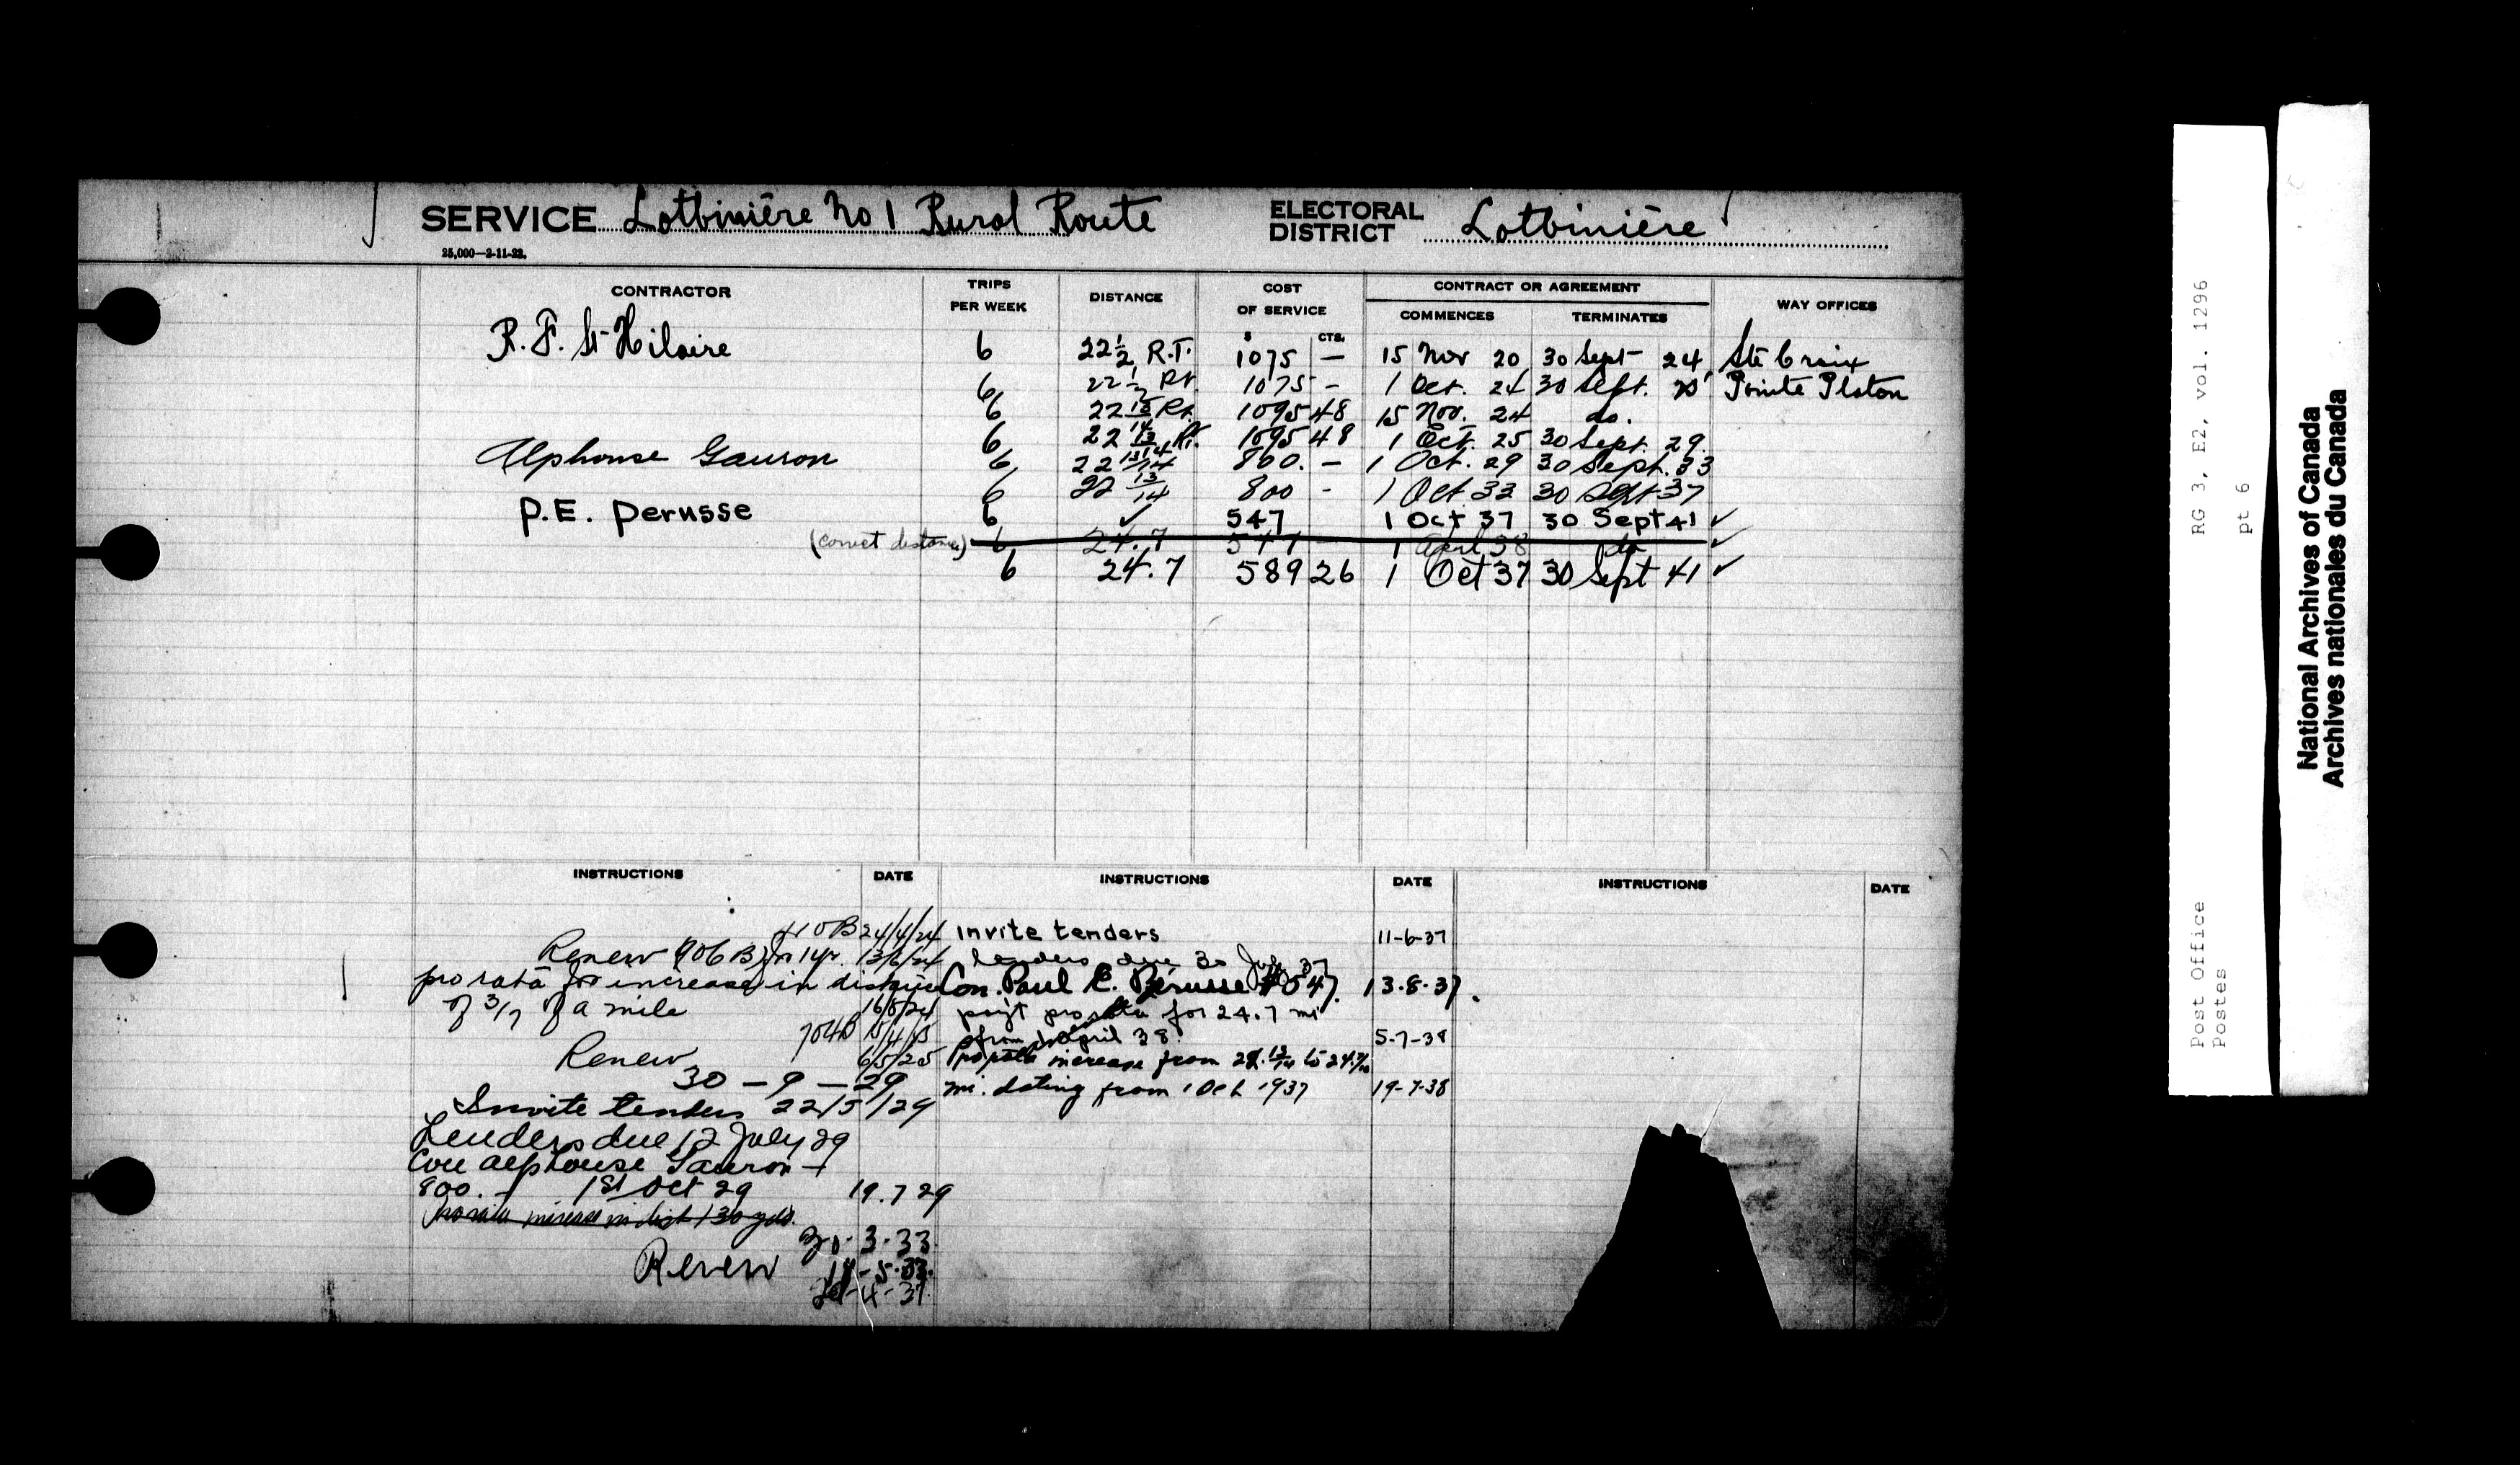 SERVICE Lotbinière No 1 Rural Route ELECTORAL DISTRICT Lotbinière
25,000—2-11-22.
CONTRACTOR TRIPS PER WEEK DISTANCE COST OF SERVICE CONTRACT OR AGREEMENT WAY OFFICES
COMMENCES TERMINATES
$ CTS.
R. F. St Hilaire 6 22 1/2 R.T. 1075 — 15 Nov 20 30 Sept 24 Ste Croix
6 22 1/2 Rt. 1075 - 1 Oct. 24 30 Sept. Pointe Platon
6 22 Rt. 1095 48 15 Nov. 24 do.
6 22 13/14 Rt. 1095 48 1 Oct. 25 30 Sept. 29.
Alphonse Gauron 6 22 13/14 800. — 1 Oct. 29 30 Sept. 33
6 22 13/14 800 - 1 Oct 33 30 Sept 37
P.E. Perusse 6 ✓ 547 1 Oct 37 30 Sept 41 ✓
(correct distance) 6 24.7 547 — 1 April 38 do ✓
6 24.7 589 26 1 Oct 37 30 Sept 41 ✓
INSTRUCTIONS DATE INSTRUCTIONS DATE INSTRUCTIONS DATE
410B 24/4/24
Renew (906 B) for 1 yr. 13/6/24
pro rata for increase in distance
of 3/7 of a mile 16/8/24
704B 15/4/25
Renew 6/5/25
30 — 9 — 29
Invite tenders 22/5/29
Tenders due 12 July 29
Con Alphonse Gauron —
800. — 1st Oct 29 19.7 29
Pro rata increase in dist 130 yds.
3.33
Renew -5.33.
-4-37
Invite tenders 11-6-37
Tenders due 30 July 37
Con. Paul E. Pérusse $547. 13.8.37.
pay't pro rata for 24.7 mi
from 1 April 38. 5-7-38
pro rata increase from 22 13/14 to 24.7/10
mi. dating from 1 Oct 1937 19-7-38
RG 3, E2, vol. 1296
pt 6
Post Office
Postes
National Archives of Canada
Archives nationales du Canada